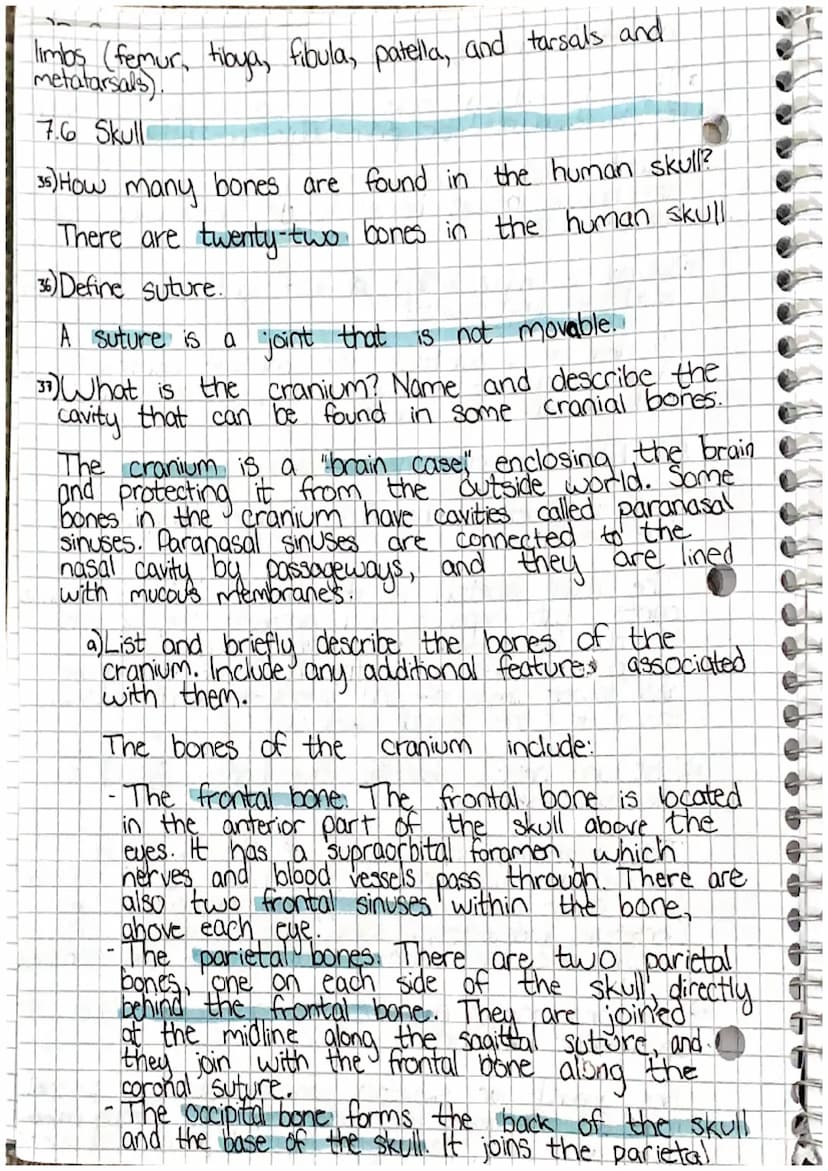 limbs (femur, tibya, fibula, patella, and tarsals and
metatarsals).
7.6 Skull
35) How many bones are found in the human skull?
There are twenty-two bones in the human skull
36) Define suture.
A suture is a joint that is not movable.
37) What is the cranium? Name and describe the
cavity that can be found in some cranial bones.
The cranium is a "brain case," enclosing the brain
and protecting it from the outside world. Some
bones in the cranium have cavities called paranasal
sinuses. Paranasal sinuses are connected to the
nasal cavity by passageways, and they are lined
with mucous membranes.
a) List and briefly describe the bones of the
cranium. Include any additional features associated
with them.
The bones of the cranium include:
- The frontal bone. The frontal bone is located
in the anterior part of the skull above the
eyes. It has a supraorbital foramen, which
nerves and blood vessels pass through. There are
also two frontal sinuses within the bone,
above each eye.
- The parietal bones. There are two parietal
bones, one on each side of the skull, directly
behind the frontal bone. They are joined
at the midline along the sagittal suture, and
they join with the frontal bone along the
coronal suture.
- The occipital bone forms the back of the skull
and the base of the skull. It joins the parietal